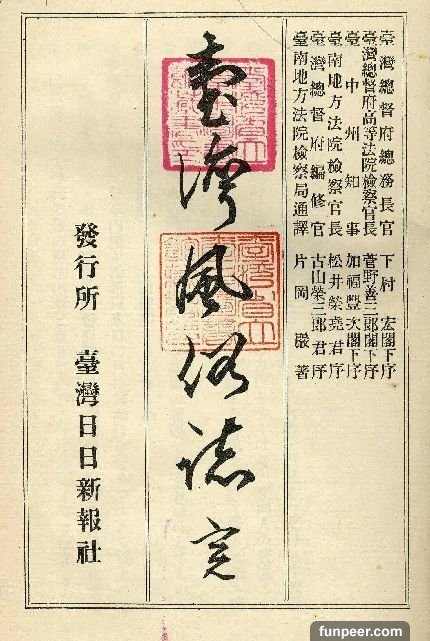 臺灣總督府總務長官 下村 宏閣下序
臺灣總督府高等法院檢察官長 菅野善三郎閣下序
臺中州知事 加福豐次閣下序
臺南地方法院檢察官長 松井榮堯君序
臺灣總督府編修官 古山榮三郎君序
臺南地方法院檢察局通譯 片岡 巖著
臺灣風俗誌 完
發行所 臺灣日日新報社
funpeer.com